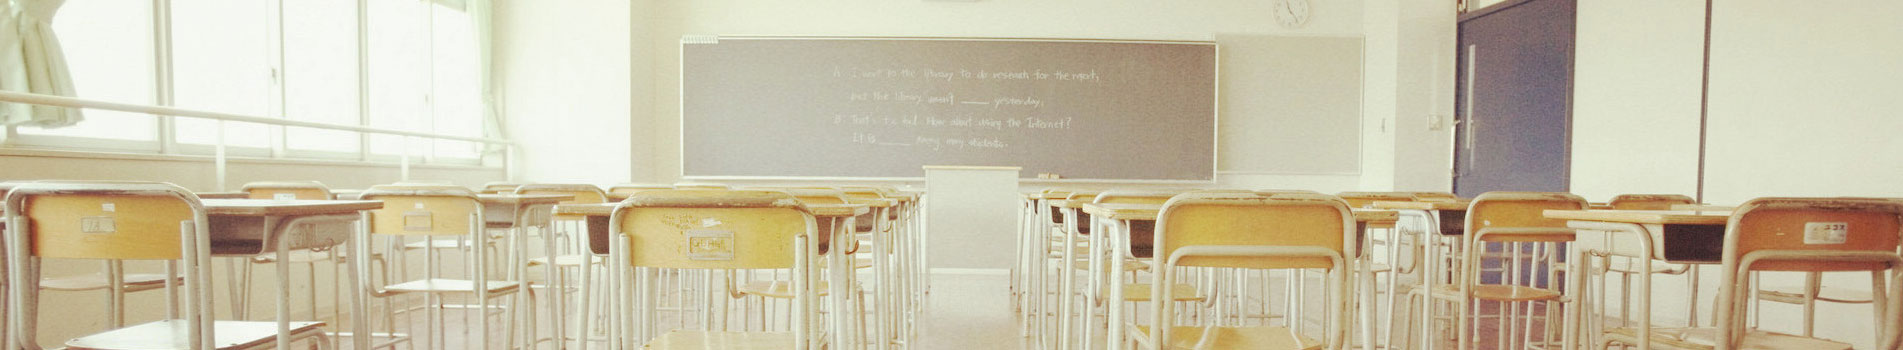 A. I went to the library to do research for the report,
but the library wasn't ____ yesterday.
B. That's too bad. How about using the Internet?
It is ____ among many students.